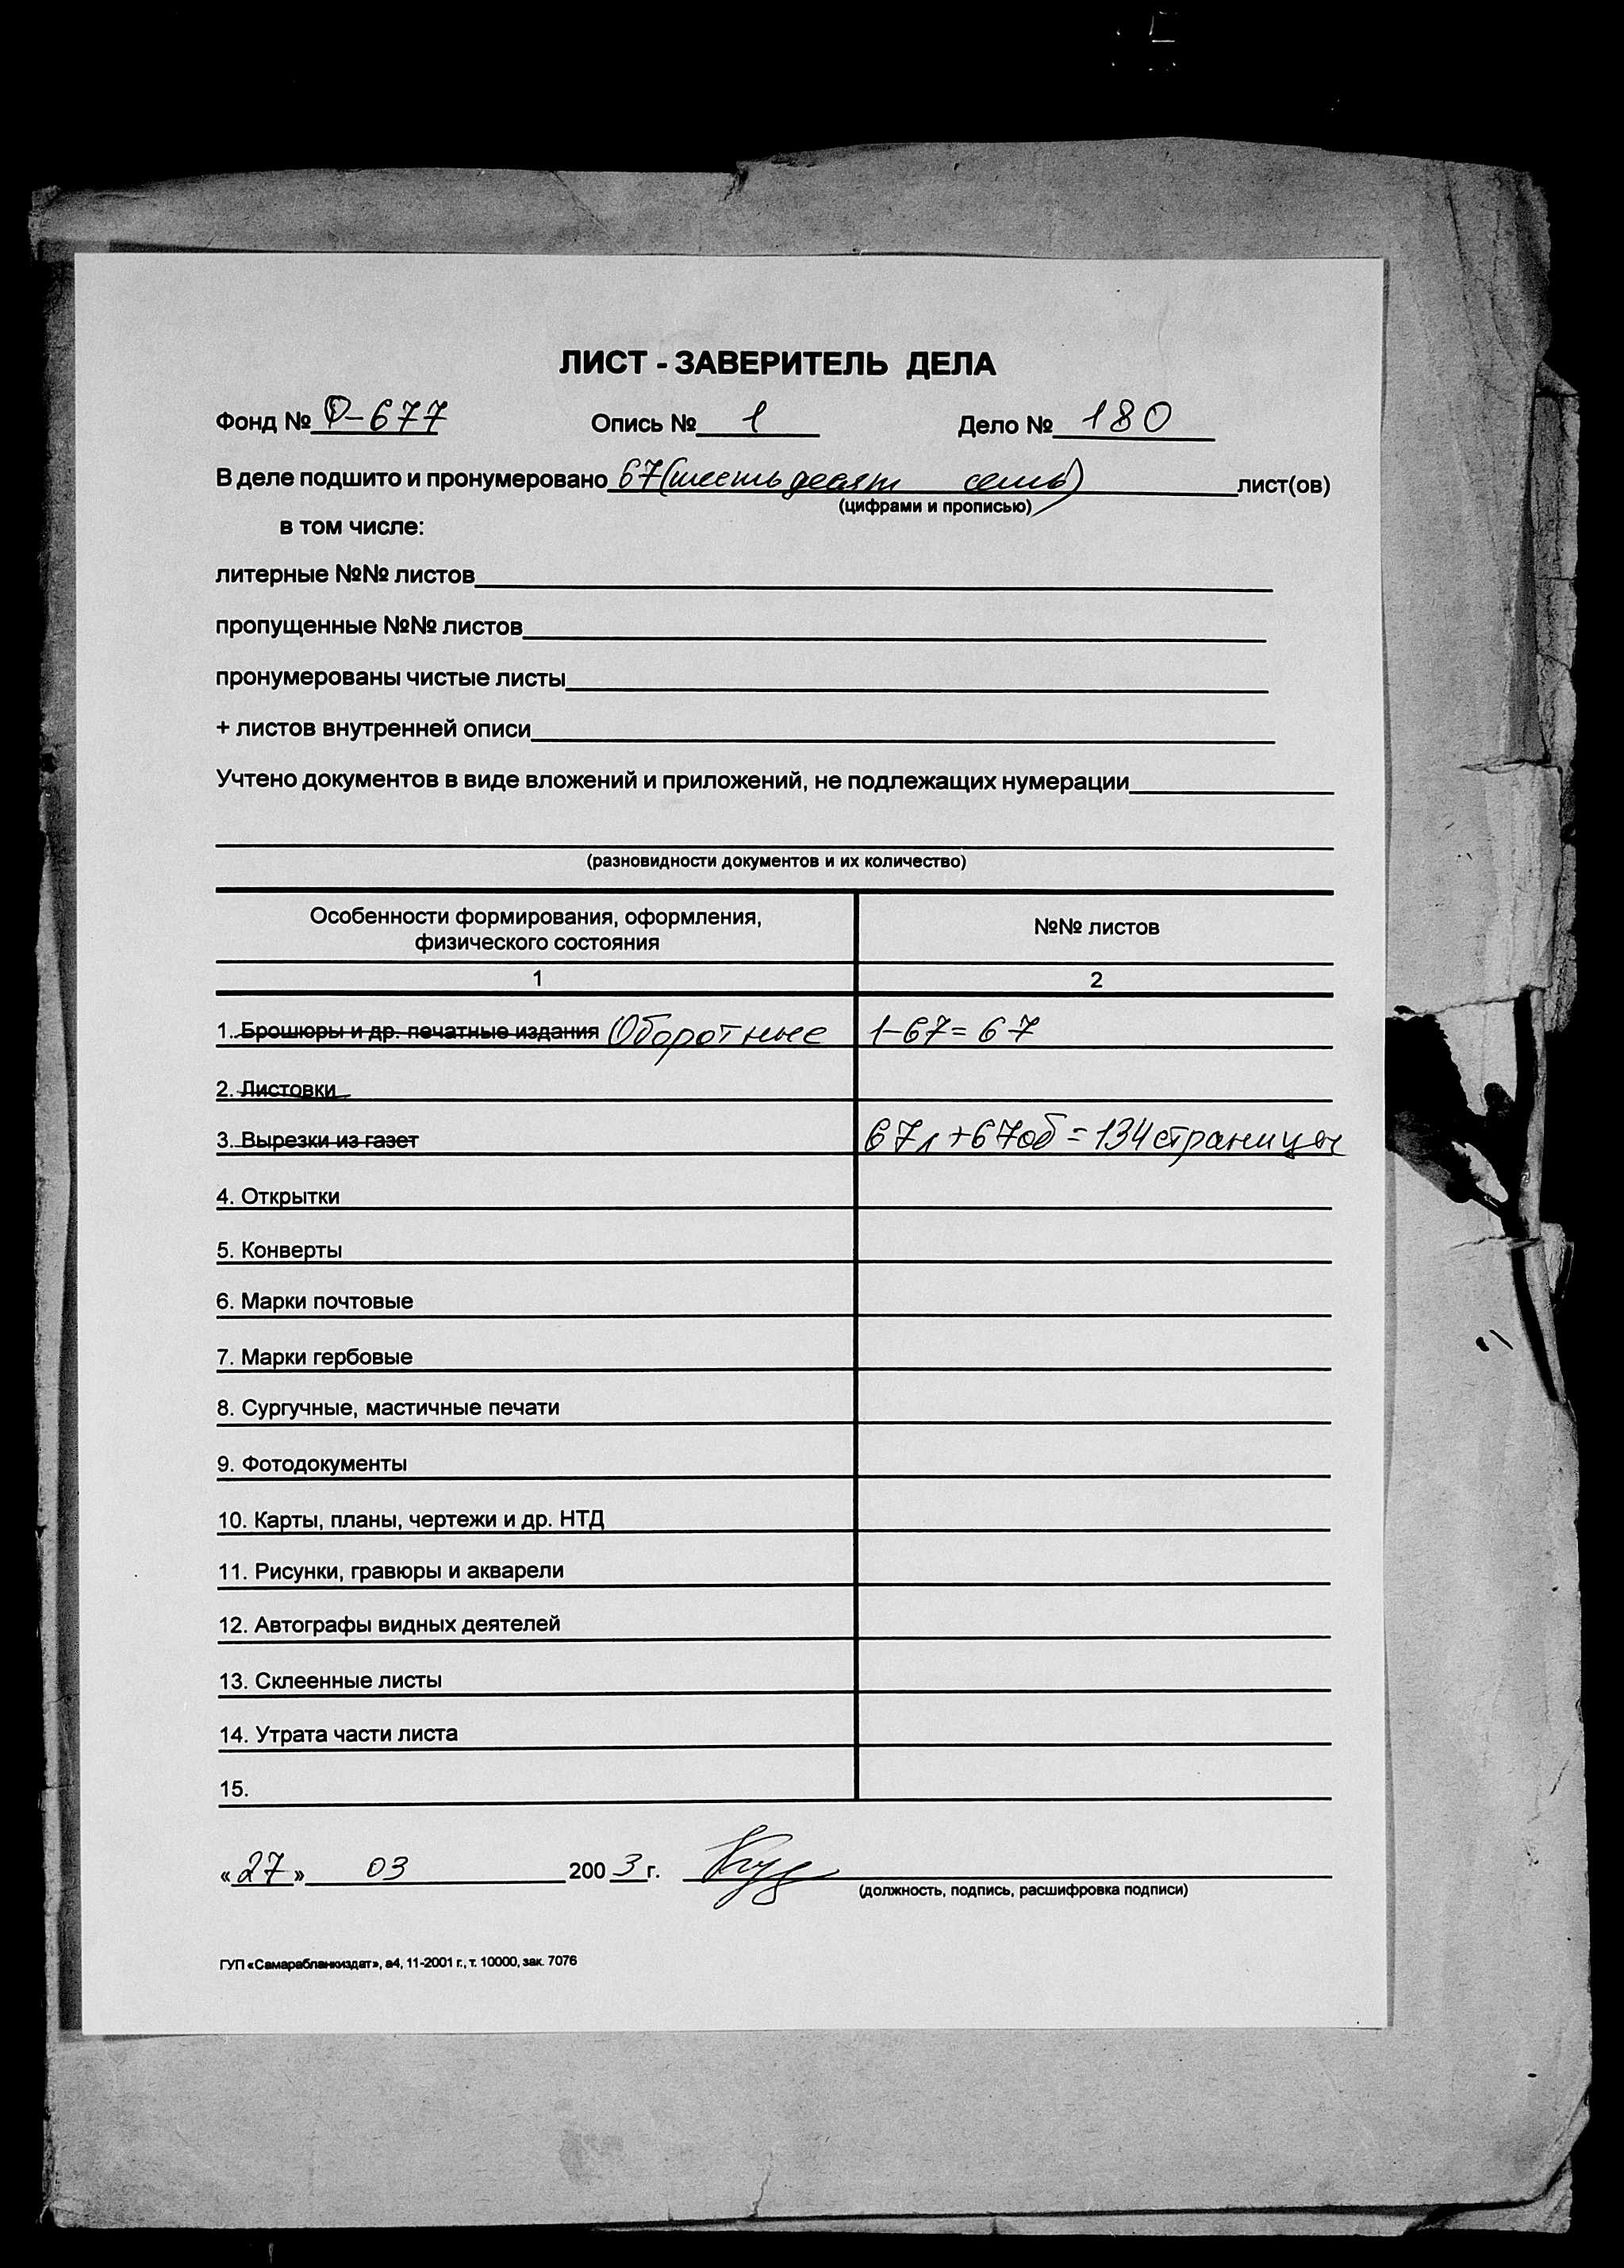 ЛИСТ - ЗАВЕРИТЕЛЬ ДЕЛА
Фонд № Р-677 Опись № 1 Дело № 180
В деле подшито и пронумеровано 67 (шестьдесят семь) лист(ов)
(цифрами и прописью)
в том числе:
литерные №№ листов
пропущенные №№ листов
пронумерованы чистые листы
+ листов внутренней описи
Учтено документов в виде вложений и приложений, не подлежащих нумерации
(разновидности документов и их количество)
Особенности формирования, оформления, №№ листов
физического состояния
1 2
1. Брошюры и др. печатные издания Оборотные 1-67=67
2. Листовки
3. Вырезки из газет 67л+67об=134страницы
4. Открытки
5. Конверты
6. Марки почтовые
7. Марки гербовые
8. Сургучные, мастичные печати
9. Фотодокументы
10. Карты, планы, чертежи и др. НТД
11. Рисунки, гравюры и акварели
12. Автографы видных деятелей
13. Склеенные листы
14. Утрата части листа
15.
«27» 03 2003 г.
(должность, подпись, расшифровка подписи)
ГУП «Самарабланкиздат», а4, 11-2001 г., т. 10000, зак. 7076